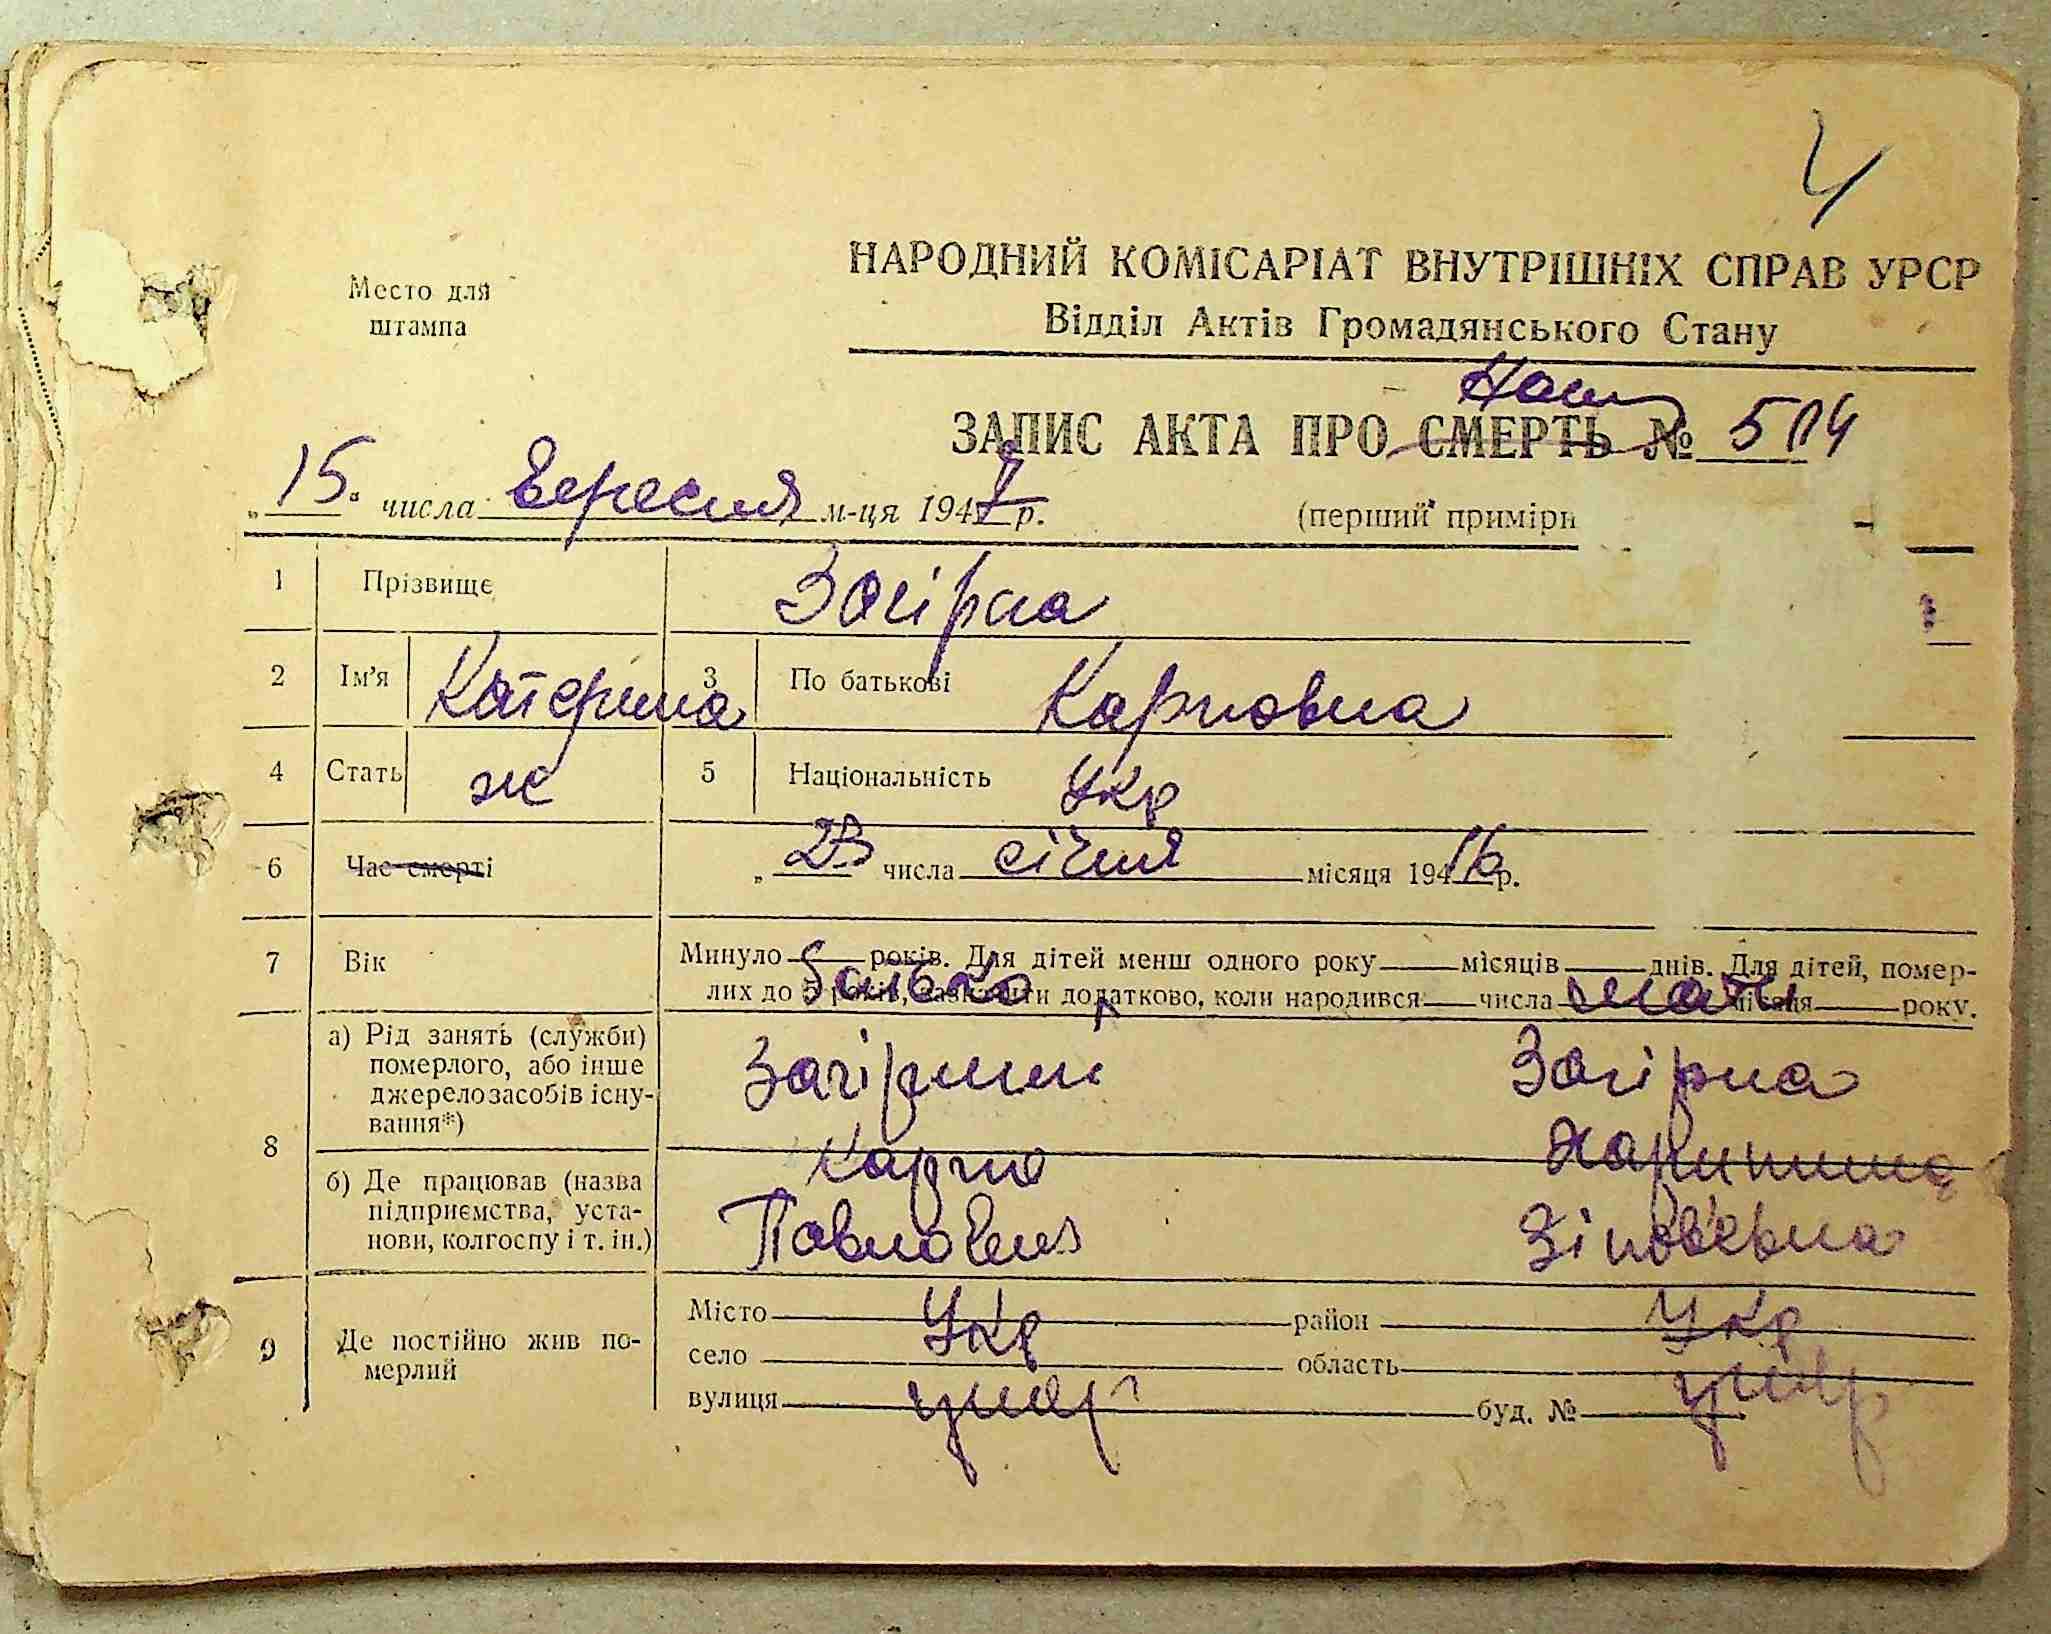 4
Место для
штампа
НАРОДНИЙ КОМІСАРІАТ ВНУТРІШНІХ СПРАВ УРСР
Відділ Актів Громадянського Стану
ЗАПИС АКТА ПРО СМЕРТЬ №
„15" числа Вересня м-ця 1947 р. (перший примірн
1 Прізвище Загірна
2 Ім'я Катерина 3 По батькові Карповна
4 Стать ж 5 Національність Укр
6 Час смерті „23 числа січня місяця 194 16 р.
7 Вік Минуло років. Для дітей менш одного року місяців днів. Для дітей, помер-
лих до 5 років, зазначити додатково, коли народився числа місяця року.
Батько мати
8 а) Рід занять (служби)
померлого, або інше
джерело засобів існу-
вання*)
Загірний Загірна
Карпо
б) Де працював (назва
підприємства, уста-
нови, колгоспу і т. ін.)
Павлович Зіновьевна
9 Де постійно жив по-
мерлий
Місто Укр район Укр
село область
вулиця буд. №